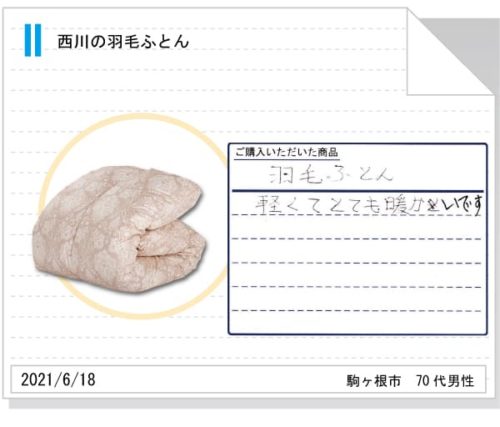 西川の羽毛ふとん
ご購入いただいた商品
羽毛ふとん
軽くてとても暖かいです
2021/6/18
駒ヶ根市 70代男性